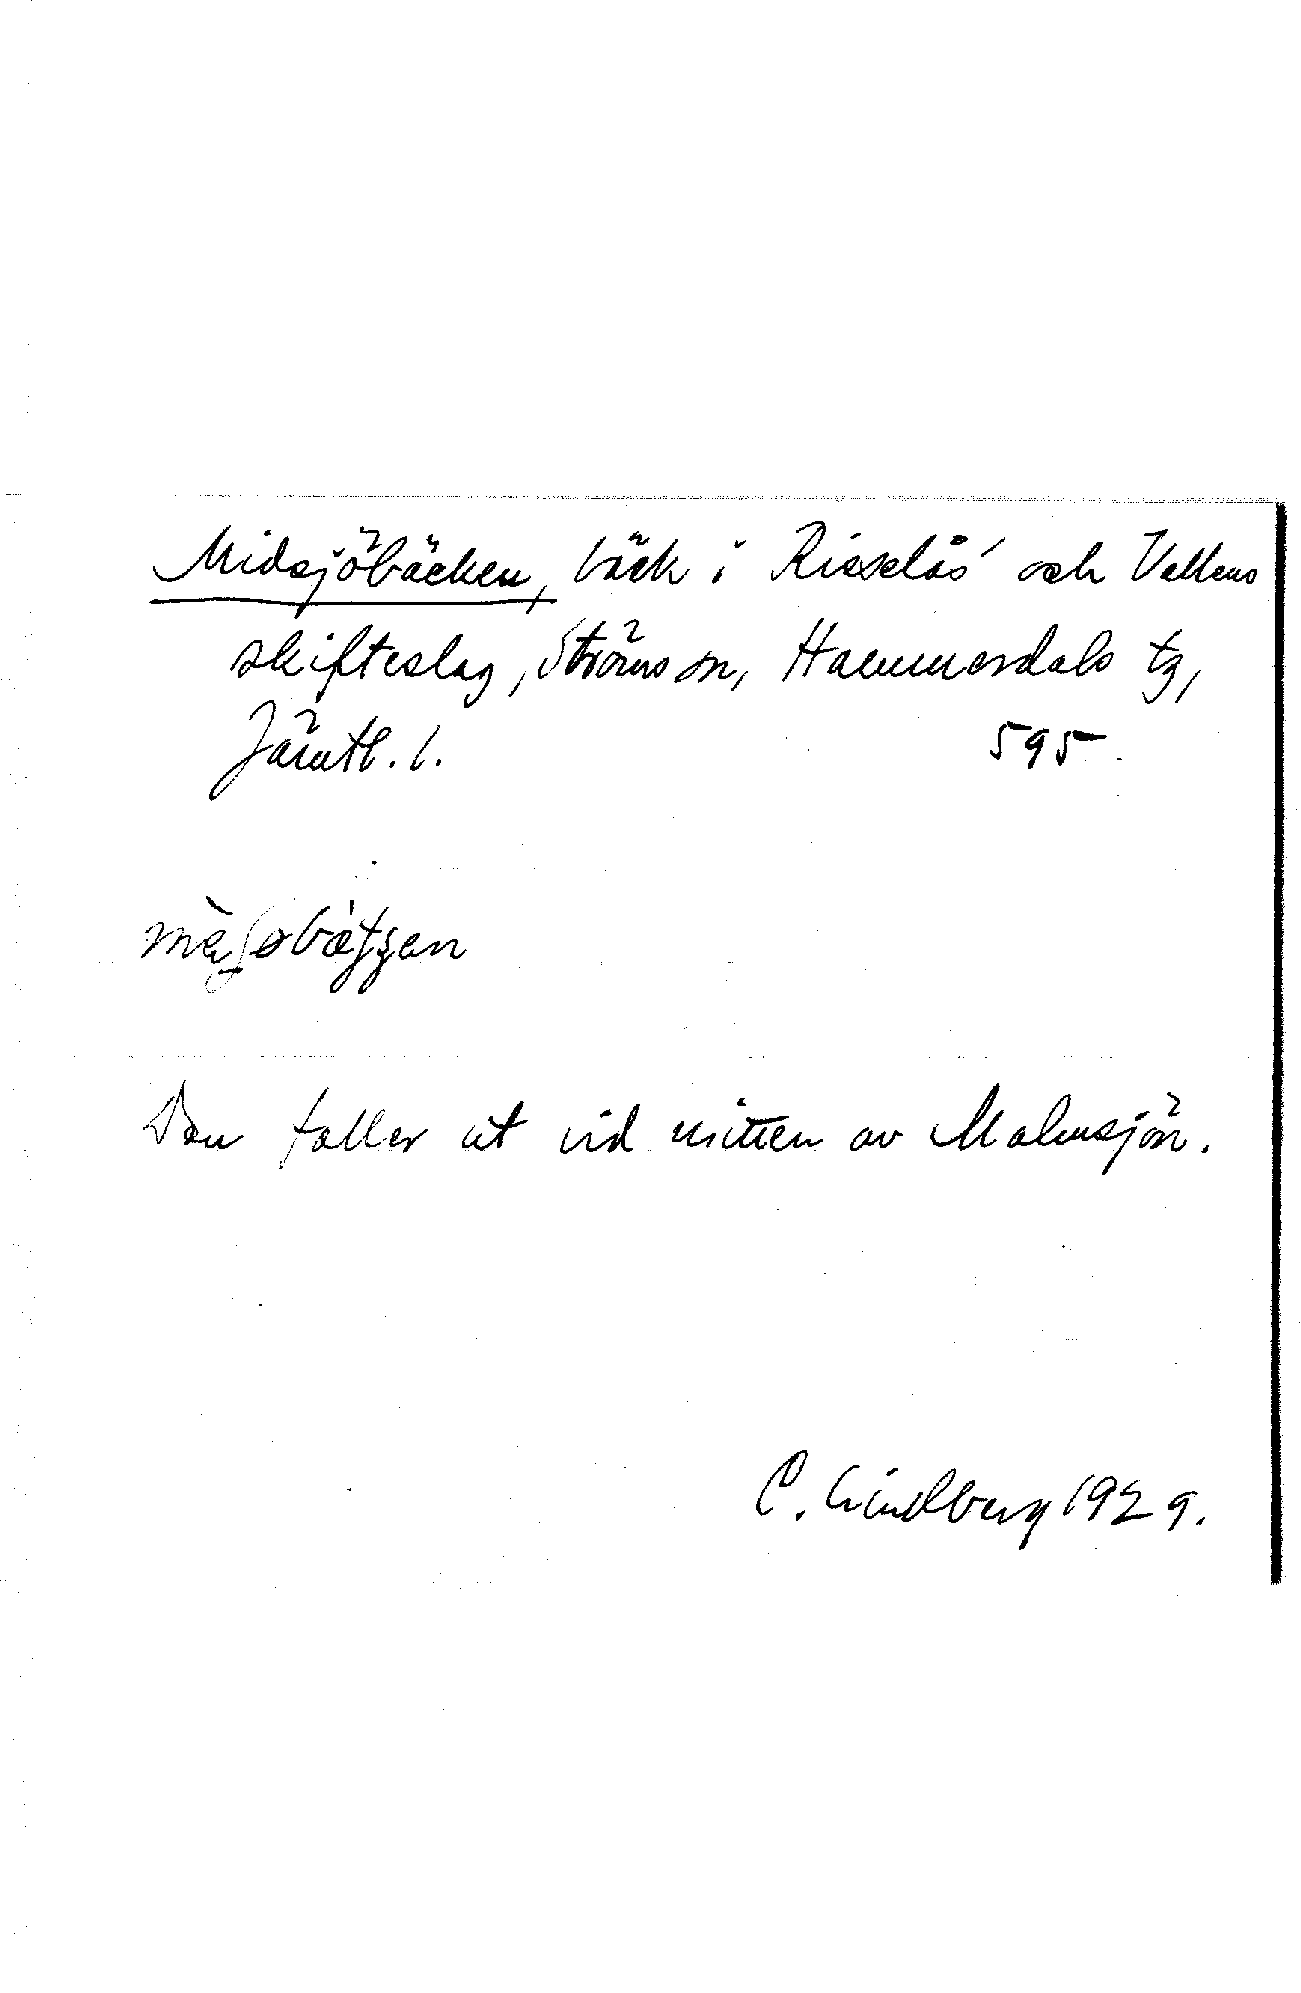 Midsjöbäcken, bäck i Risselås och Vallens
skifteslag, Ströms sn, Hammerdals tg,
Jämtl. l. 595
Den faller ut vid mitten av Malmsjön.
C. Lindberg 1929.